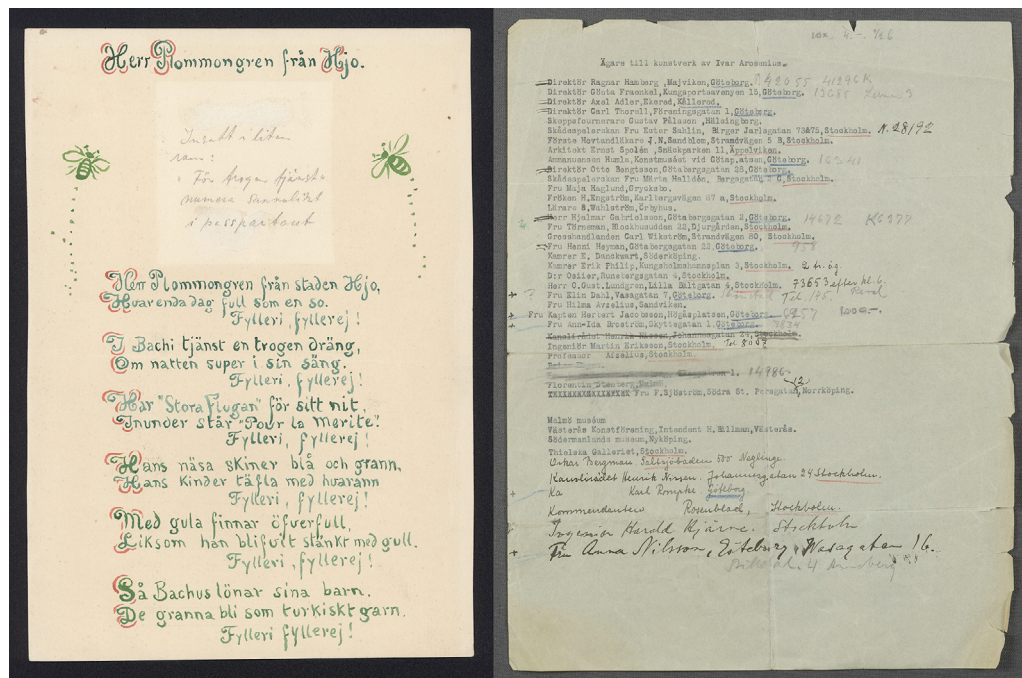 Herr Plommongren från Hjo.
Insatt i liten
ram:
"För trogen tjänst"
numera
i passpartout
Herr Plommongren från staden Hjo,
Hvarenda dag full som en so.
Fylleri, fyllerej!
I Bachi tjänst en trogen dräng,
Om natten super i sin säng.
Fylleri, fyllerej!
Har "Stora Flugan" för sitt nit,
Inunder står "Pour la Merite".
Fylleri, fyllerej!
Hans näsa skiner blå och grann,
Hans kinder täfla med hvarann
Fylleri, fyllerej!
Med gula finnar öfverfull,
Liksom han blifvit stänkt med gull.
Fylleri, fyllerej!
Så Bachus lönar sina barn.
De granna bli som turkiskt garn.
Fylleri fyllerej!
Ägare till konstverk av Ivar Arosenius.
Direktör Ragnar Hamberg ,Majviken,Göteborg. 41296K
Direktör Gösta Fraenckel,Kungsportsavenyen 15,Göteborg. 13685
Direktör Axel Adler,Ekered,Källered.
Direktör Carl Thorell,Föreningsgatan 1,Göteborg.
Skeppsfournerare Gustav Pålsson ,Hälsingborg.
Skådespelerskan Fru Ester Sahlin, Birger Jarlsgatan 73&75,Stockholm. N. 28/92
Förste Hovtandläkare J.N.Sandblom,Strandvägen 5 B,Stockholm.
Arkitekt Ernst Spolén ,Snäckparken 11,Äppelviken.
Ammanuensen Humla,Konstmuséet vid Götaplatsen,Göteborg. 16341
Direktör Otto Bengtsson,Götabergsgatan 28,Göteborg.
Skådespelerskan Fru Märta Halldén, Bergsgatan 2 C,Stockholm.
Fru Maja Haglund,Grycksbo.
Fröken H.Engström,Karlbergsvägen 87 a,Stockholm.
Lärare S.Wahlström,Örbyhus.
Herr Hjalmar Gabrielsson,Götabergsgatan 2,Göteborg. 14672 K6377
Fru Törneman,Blockhusudden 22,Djurgården,Stockholm.
Grosshandlanden Carl Wikström,Strandvägen 80, Stockholm.
Fru Henni Heyman,Götabergsgatan 22,Göteborg. 958
Kamrer E. Danckwart,Söderköping.
Kamrer Erik Philip,Kungsholmshamnsplan 3,Stockholm. 2 tr. ög.
D:r Osiler,Runebergsgatan 4,Stockholm.
Herr C.Gust.Lundgren,Lilla Bältgatan 4,Stockholm. 73653 efter kl. 6.
Fru Elin Dahl,Vasagatan 7,Göteborg. Tel. 195
Fru Hilma Avzelius,Sandviken.
Fru Kapten Herbert Jacobsson,Högåsplatsen,Göteborg. 6257 1000:-
Fru Ann-Ida Broström,Skyttegatan 1,Göteborg.
Kanslirådet Henrik Nissen,Johannesgatan 24,Stockholm.
Ingeniör Martin Eriksson,Stockholm.
Professor Afzelius,Stockholm.
1. 14986
Florentin Stenberg,Malmö.
Fru F.Sjöström,Södra St. Persgatan 12,Norrköping.
Malmö muséum
Västerås Konstförening,Intendent H.Hållman,Västerås.
Södermanlands museum,Nyköping.
Thielska Galleriet,Stockholm.
Oskar Bergman Saltsjöbaden 500 Neglinge.
Kanslirådet Henrik Nissen. Johannesgatan 24 Stockholm.
Ka Karl Rompke Göteborg
Kommendanten Rosenblad, Stockholm.
Ingeniör Harald Hjärne. Stockholm
Fru Anna Nilsson, Göteborg, Wasagatan 16.